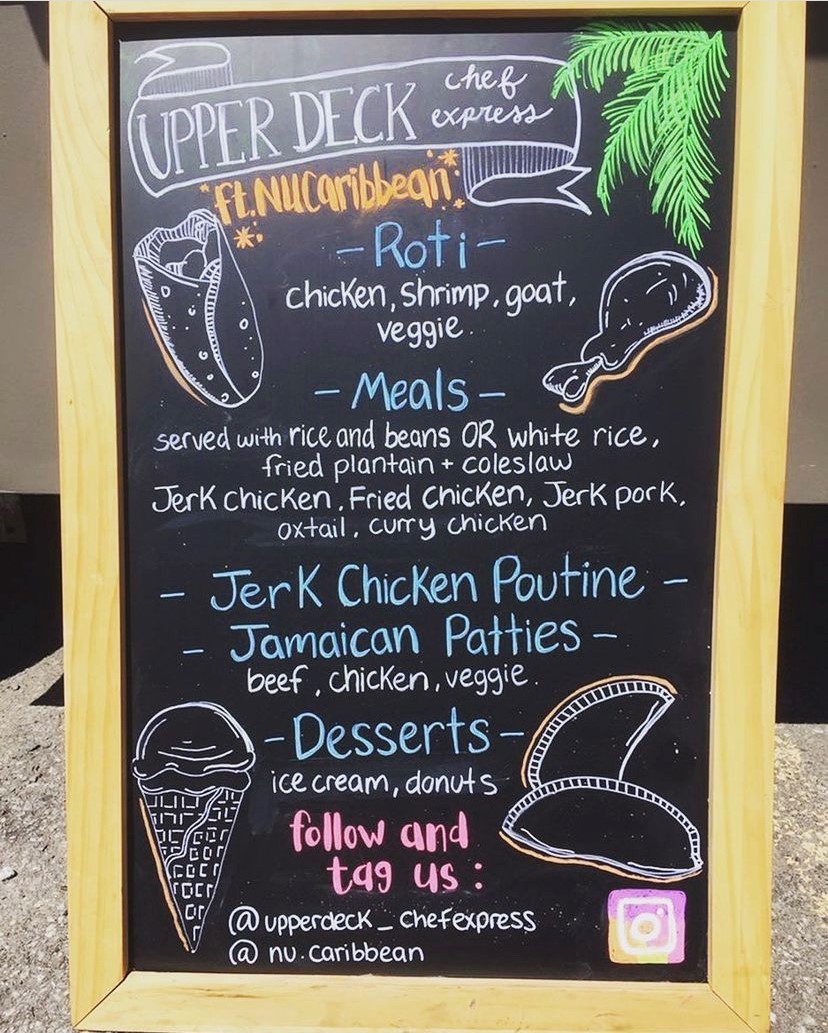 UPPER DECK chef express
ft. NUCaribbean
- Roti -
chicken, shrimp, goat,
veggie.
- Meals -
served with rice and beans OR white rice,
fried plantain + coleslaw
Jerk chicken, Fried Chicken, Jerk pork,
oxtail, curry chicken
- Jerk Chicken Poutine -
- Jamaican Patties -
beef, chicken, veggie.
- Desserts -
ice cream, donuts
follow and
tag us :
@upperdeck_chefexpress
@nu.caribbean